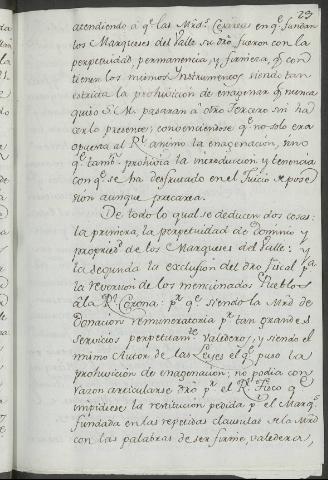 23
atendiendo á q.e las Mrds. Cesáreas en q.e fundan
los Marqueses del Valle su dro fueron con la
perpetuidad, permanencia, y firmeza, q.e con
tienen los mismos Instrumentos, siendo tan
estrida la prohivicion de enagenar q.e nunca
quiso S. M. pasaran á otro Tercero sin ha
cerlo presente; convenciendose q.e no solo era
opuesta al R.l animo la enagenacion, sino
q.e tamb.n prohivia la introducion y tenencia
con q.e se ha desfrutado en el Juicio de pose
sion aunque precaria.
De todo lo qual se deducen dos cosas:
la primera, la perpetuidad de Dominio y
propried.d de los Marqueses del Valle: y
la segunda la exclusion del dro Fiscal p.a
la reversion de los mencionados Pueblos
á la R.l Corona: p.r q.e siendo la Mrd de
Donacion remuneratoria p.r tan grandes
servicios perpetuam.te valedera, y siendo el
mismo Autor de las Leyes el q.e puso la
prohivicion de enagenacion; no podia con
razon articularse dro p.r el R.l Fisco q.e
impidiese la restitucion pedida p.r el Marq.s
fundada en las repetidas clausulas de la Mrd
con las palabras de ser firme, valedera,